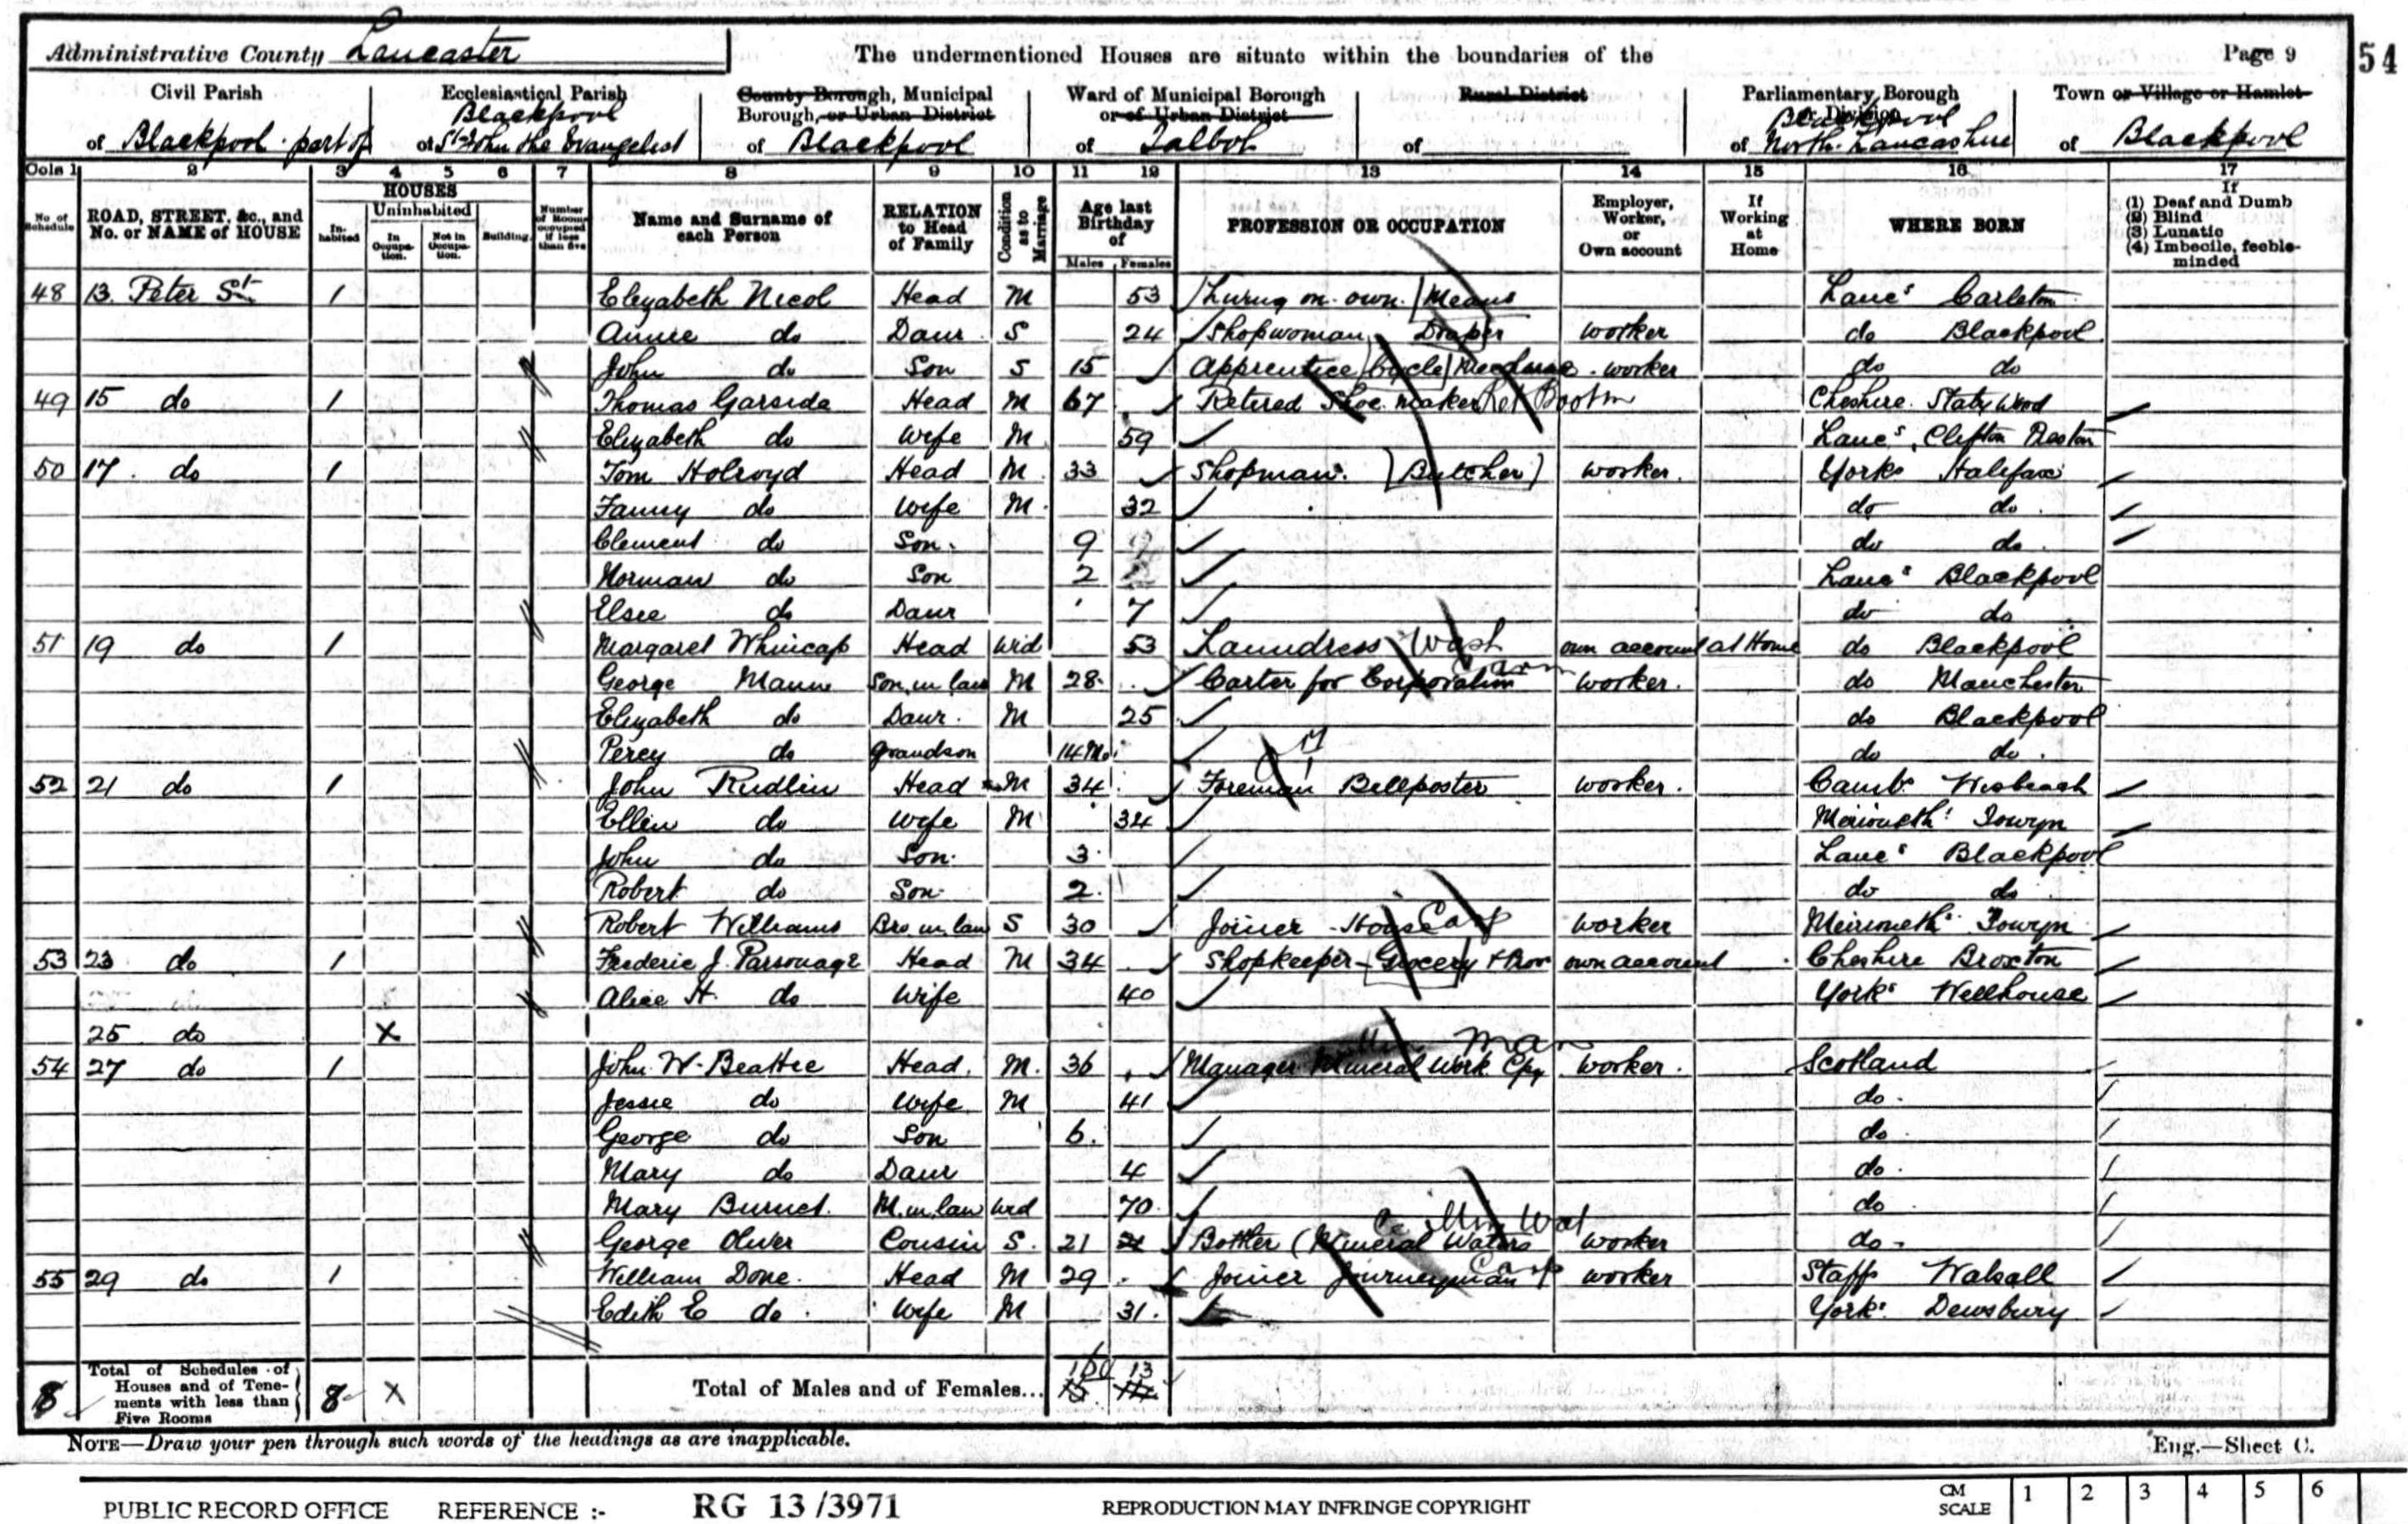 Administrative County Lancaster The undermentioned Houses are situate within the boundaries of the Page 9 54
Civil Parish Ecclesiastical Parish County Borough, Municipal Ward of Municipal Borough Rural District Parliamentary Borough Town or Village or Hamlet
Blackpool Borough, or Urban District or of Urban District or Division Blackpool
of Blackpool part of of St John the Evangelist of Blackpool of Talbot of of North Lancashire of Blackpool
Cols 1 2 3 4 5 6 7 8 9 10 11 12 13 14 15 16 17
No of Schedule ROAD, STREET, &c., and No. or NAME of HOUSE HOUSES Inhabited Uninhabited In Occupation. Not in Occupation. Building. Number of Rooms occupied if less than five Name and Surname of each Person RELATION to Head of Family Condition as to Marriage Age last Birthday of Males Females PROFESSION OR OCCUPATION Employer, Worker, or Own account If Working at Home WHERE BORN If (1) Deaf and Dumb (2) Blind (3) Lunatic (4) Imbecile, feeble-minded
48 13. Peter St 1 Elizabeth Nicol Head M 53 Living on own Means Lancs Carleton
Annie do Daur S 24 Shopwoman Draper worker do Blackpool
John do Son S 15 Apprentice Cycle worker do do
49 15 do 1 Thomas Garside Head M 67 Retired Shoe maker Ret Bootm Cheshire
Elizabeth do Wife M 59 Lancs, Clifton Preston
50 17. do 1 Tom Holroyd Head M 33 Shopman. (Butcher) worker. Yorks Halifax
Fanny do Wife M 32 do do
Clement do Son 9 do do
Norman do Son 2 Lancs Blackpool
Elsie do Daur 7 do do
51 19 do 1 Margaret Whincap Head Wid 53 Laundress Wash own account at Home do Blackpool
George Mann Son in law M 28 Carter for Corporation worker. do Manchester
Elizabeth do Daur. M 25 do Blackpool
Percy do Grandson 14 Mo do do
52 21 do 1 John Rudlin Head M 34 Foreman Billposter worker. Cambs Wisbeach
Ellen do Wife M 34 Merioneth Towyn
John do Son 3 Lancs Blackpool
Robert do Son 2 do do
Robert Williams Bro in law S 30 Joiner House Carp worker Merioneth Towyn
53 23 do 1 Frederic J. Parsonage Head M 34 Shopkeeper - Grocery + Prov own account Cheshire Broxton
Alice H. do Wife 40 Yorks Wellhouse
25 do X
54 27 do 1 John W. Beattie Head. M. 36 Manager Mineral Work Man worker. Scotland
Jessie do Wife M 41 do
George do Son 6 do
Mary do Daur 4 do
Mary Burnet. M. in law Wid 70 do
George Oliver Cousin S. 21 21 Bottler (Mineral Waters Min Wat worker do
55 29 do 1 William Done. Head M 29 Joiner Journeyman Carp worker Staffs Walsall
Edith E do Wife M 31 Yorks Dewsbury
8 Total of Schedules of Houses and of Tenements with less than Five Rooms 8 X Total of Males and of Females... 13
NOTE—Draw your pen through such words of the headings as are inapplicable. Eng.—Sheet C.
PUBLIC RECORD OFFICE REFERENCE :- RG 13/3971 REPRODUCTION MAY INFRINGE COPYRIGHT CM SCALE 1 2 3 4 5 6